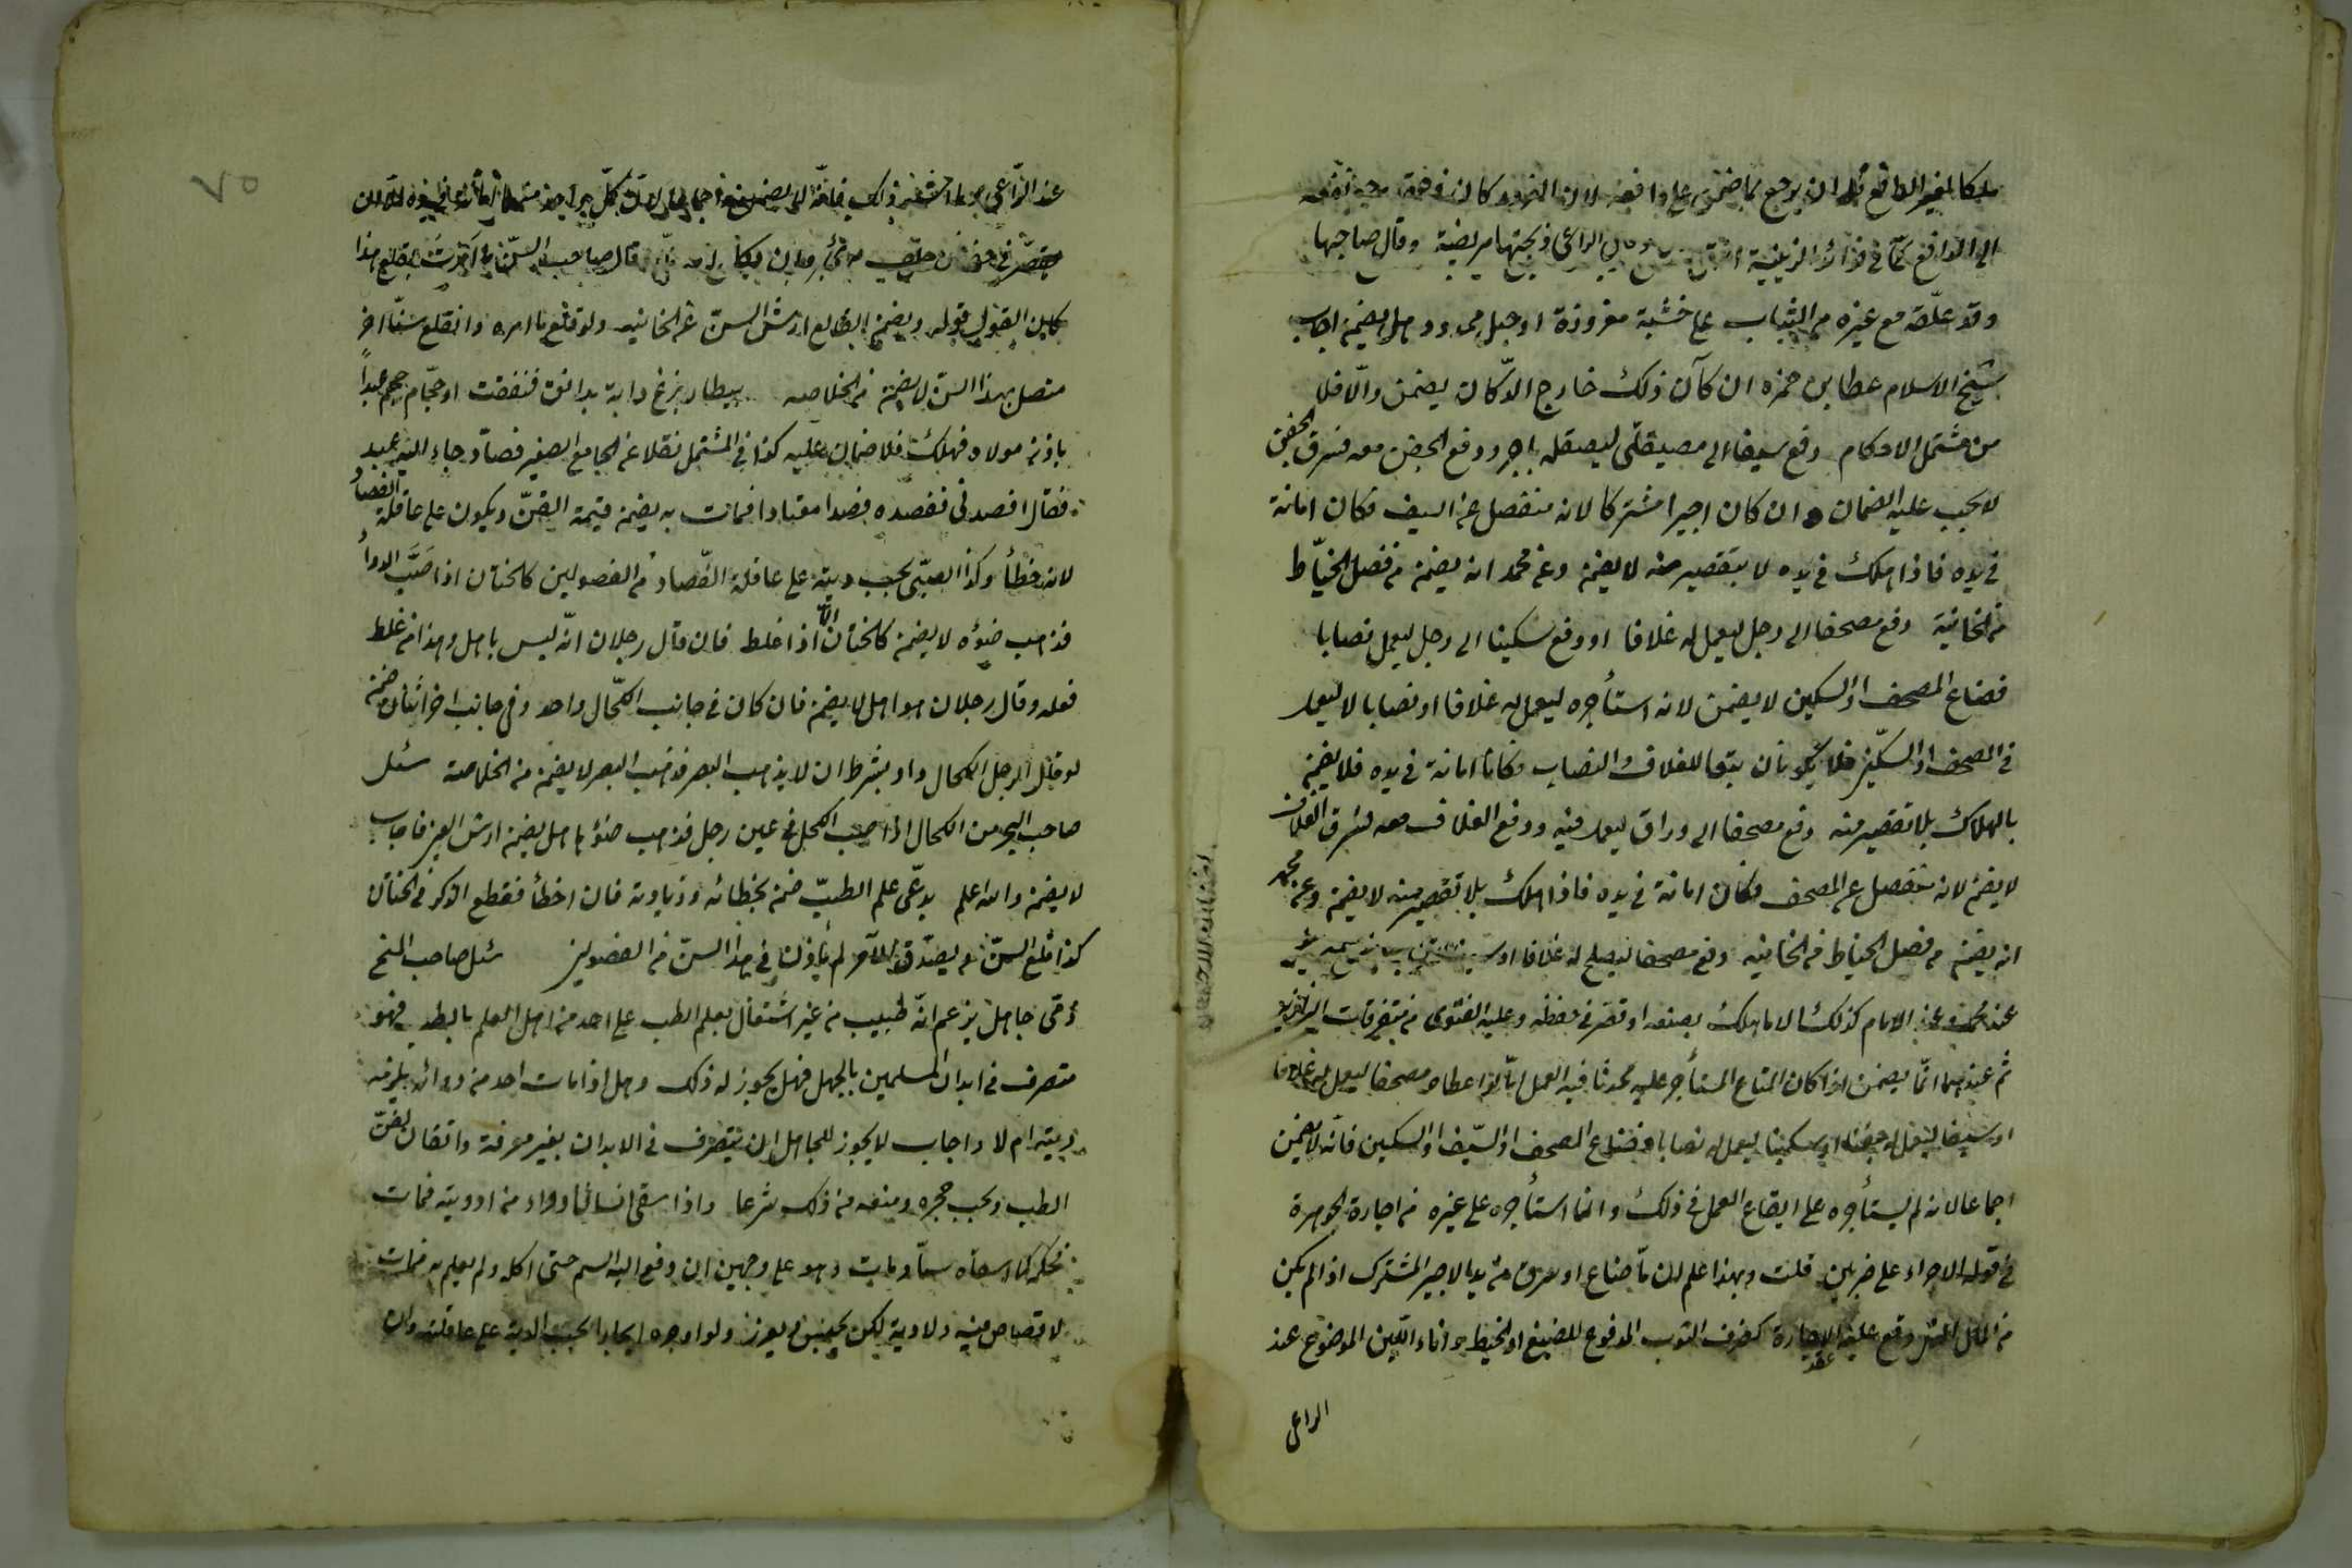 ملكا لغير الدافع له ان يرجع بما ضمن على دافعه لان
الى الدافع كما في الراعي ذبحتها مريضة وقال صاحبها
وقد علقه مع غيره من الثياب على خشبة مغروزة او حبل ممدود هل يضمن اجاب
شيخ الاسلام عطا بن حمزه ان كان ذلك خارج الدكان يضمن والا فلا
من مشتمل الاحكام دفع سيفا الى صيقلي ليصقله باجر ودفع الجفن معه فسرق الجفن
لا يجب عليه الضمان وان كان اجيرا مشتركا لانه منفصل عن السيف فكان امانة
في يده فاذا هلك في يده لا بتقصير منه لا يضمن وعن محمد انه يضمن من فصل الخياط
من الخانية دفع مصحفا الى رجل ليعمل له غلافا او دفع سكينا الى رجل ليعمل نصابا
فضاع المصحف او السكين لا يضمن لانه استأجره ليعمل له غلافا او نصابا لا ليعمل
في المصحف او السكين فلا يكونان تبعا للغلاف والنصاب فكانا امانة في يده فلا يضمن
بالهلاك بلا تقصير منه دفع مصحفا الى وراق ليعمل فيه ودفع الغلاف معه فسرق الغلاف
لا يضمن لانه منفصل عن المصحف فكان امانة في يده فاذا هلك بلا تقصير منه لا يضمن وعن محمد
انه يضمن من فصل الخياط من الخانيه دفع مصحفا ليصلح له غلافا او
عند محمد وعند الامام كذلك الا ما هلك بصنعه او قصر في حفظه وعليه الفتوى من متفرقات
ثم عندهما انما يضمن اذا كان المتاع المستأجر عليه محدثا فيه العمل اما لو اعطاه مصحفا ليعمل له غلافا
او سيفا ليعمل له جفنا او سكينا ليعمل له نصابا فضاع المصحف او السيف او السكين فانه لا يضمن
اجماعا لانه لم يستأجره على ايقاع العمل في ذلك وانما استأجره على غيره من اجارة الجوهرة
في قوله الاجراء على ضربين قلت وبهذا علم ان ما ضاع او سرق من يد الاجير المشترك اذا لم يكن
من المال الذي وقع عليه عقد الاجارة كظرف الثوب المدفوع للصبغ او الخيط واناء اللبن الموضوع عند
الراعي
عند الراعي
كان القول قوله ويضمن القالع ارش السن عن الخانيه ولو قلع ما امره وانقلع سنا اخر
متصل بهذا السن لا يضمن من الخلاصه بيطار بزغ دابة بدانق فنفقت او حجام حجم عبدا
باذن مولاه فهلك فلا ضمان عليه كذا في المشتمل نقلا عن الجامع الصغير فصاد جاء اليه عبد
فقال افصدني ففصده فصدا معتادا فمات به يضمن قيمة القن ويكون على عاقلة الفصاد
لانه خطأ وكذا الصبي يجب ديته على عاقلة الفصاد من الفصولين كالختان اذا صب الدواء
فذهب ضوؤه لا يضمن كالختان الا اذا غلط فان قال رجلان انه ليس باهل وهذا من غلط
فعله وقال رجلان هو اهل لا يضمن فان كان في جانب الكحال واحد وفي جانب اخر اثنان ضمن
لو قال الرجل للكحال داو بشرط ان لا يذهب البصر فذهب البصر لا يضمن من الخلاصة سئل
صاحب البحر من الكحال اذا صب الكحل في عين رجل فذهب ضوؤها هل يضمن ارش العين فاجاب
لا يضمن والله اعلم يدعى علم الطب ضمن بخطائه وزيادته فان اخطأ فقطع الذكر في الختان
كذا قلع السن نعم يصدق الآمر لم يأذن في هذا السن من الفصولين سئل صاحب المنح
في جاهل يزعم انه طبيب من غير اشتغال بعلم الطب على احد من اهل العلم بالطب فهو
متصرف في ابدان المسلمين بالجهل فهل يجوز له ذلك وهل اذا مات احد من دوائه يلزمه
ديته ام لا واجاب لا يجوز للجاهل ان يتصرف في الابدان بغير معرفة واتقان لفن
الطب ويجب حجره ومنعه من ذلك شرعا واذا سقى انسانا دواء من ادويته فمات
فحكمه كما لو سقاه سما ومات وهو على وجهين ان دفع اليه السم حتى اكله ولم يعلم به فمات
لا قصاص فيه ولا دية لكن يحبس ويعزر ولو اوجره ايجارا تجب الدية على عاقلته وان